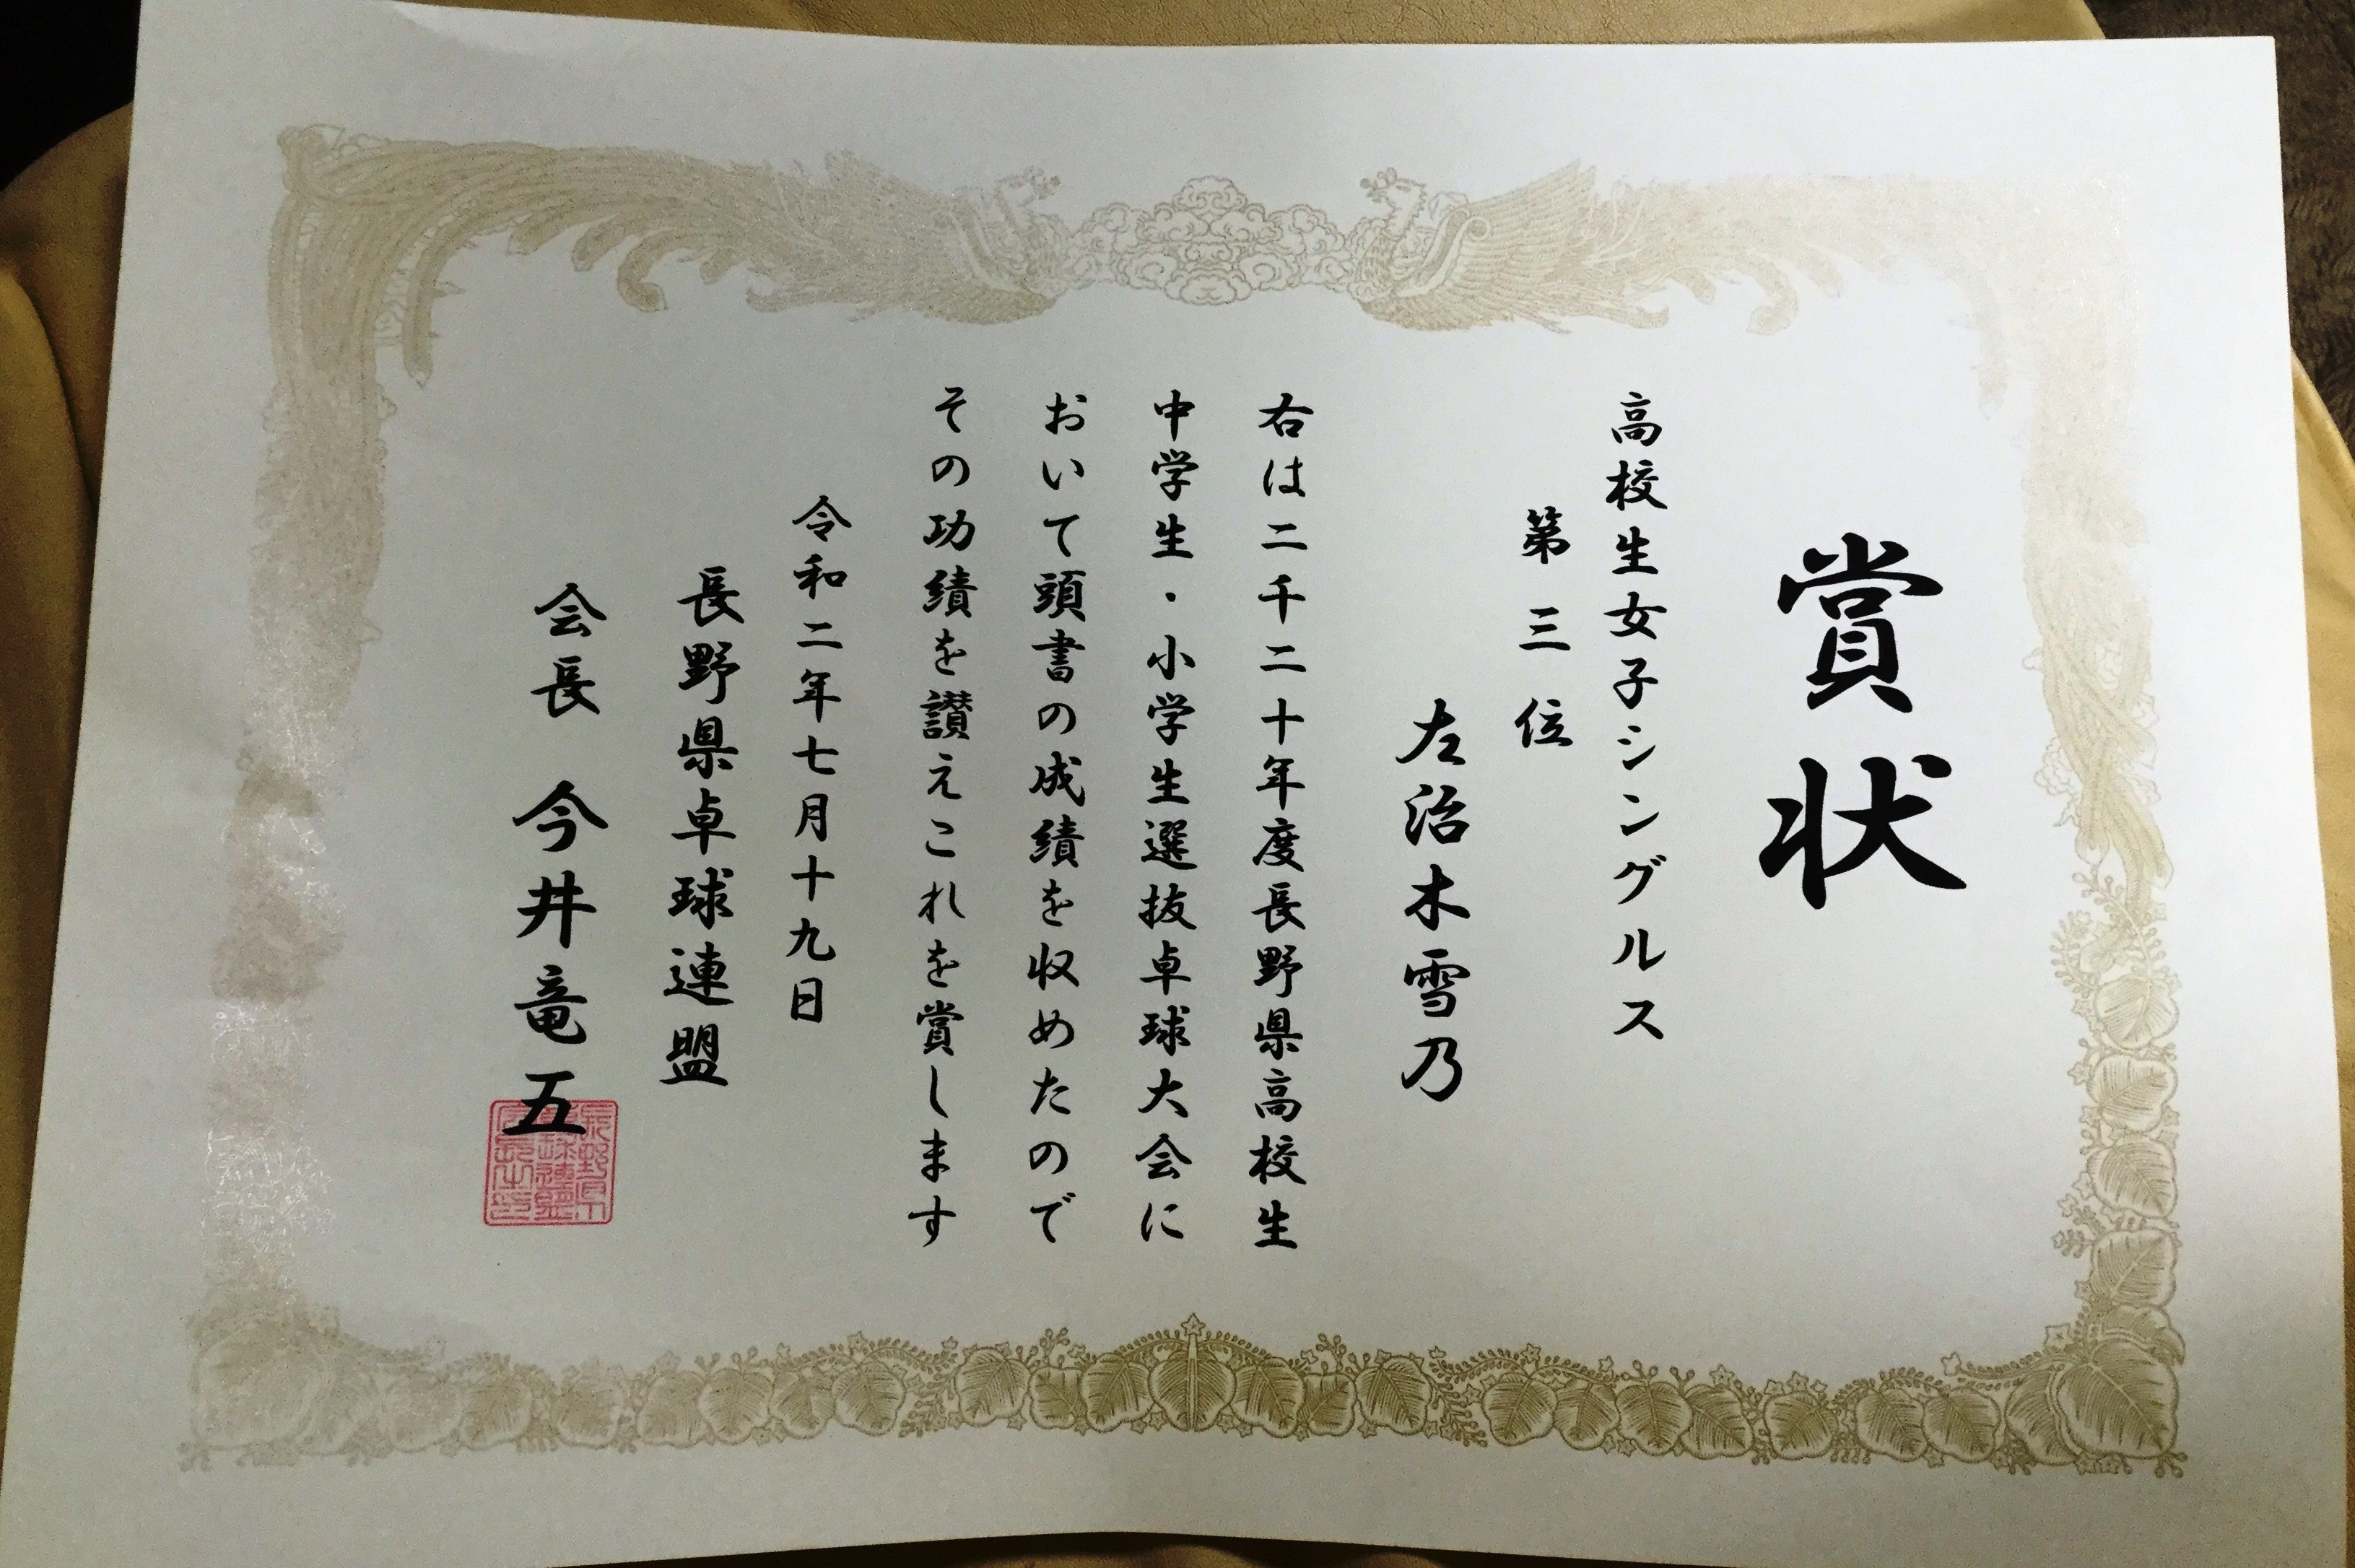 賞状
高校生女子シングルス
第三位
左治木雪乃
右は二千二十年度長野県高校生
中学生・小学生選抜卓球大会に
おいて頭書の成績を収めたので
その功績を讃えこれを賞します
令和二年七月十九日
長野県卓球連盟
会長 今井竜五